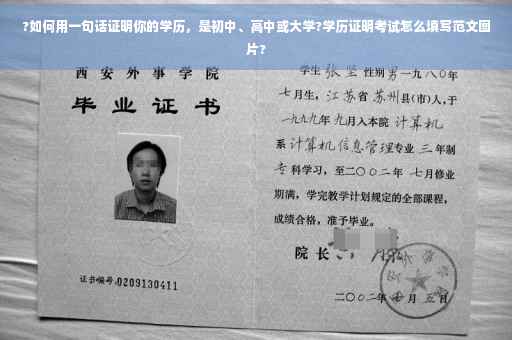 ?如何用一句话证明你的学历，是初中、高中或大学?学历证明考试怎么填写范文图
片?
西安外事学院
毕业证书
证书编号:0209130411
学生 张坚 性别男一九八0年
七月生，江苏省苏州县(市)人,于
一九九九年九月入本院 计算机
系 计算机信息管理专业 三 年制
专科学习，至二〇〇二年 七月修业
期满，学完教学计划规定的全部课程，
成绩合格，准予毕业。
院长
二〇〇二年 月 五日